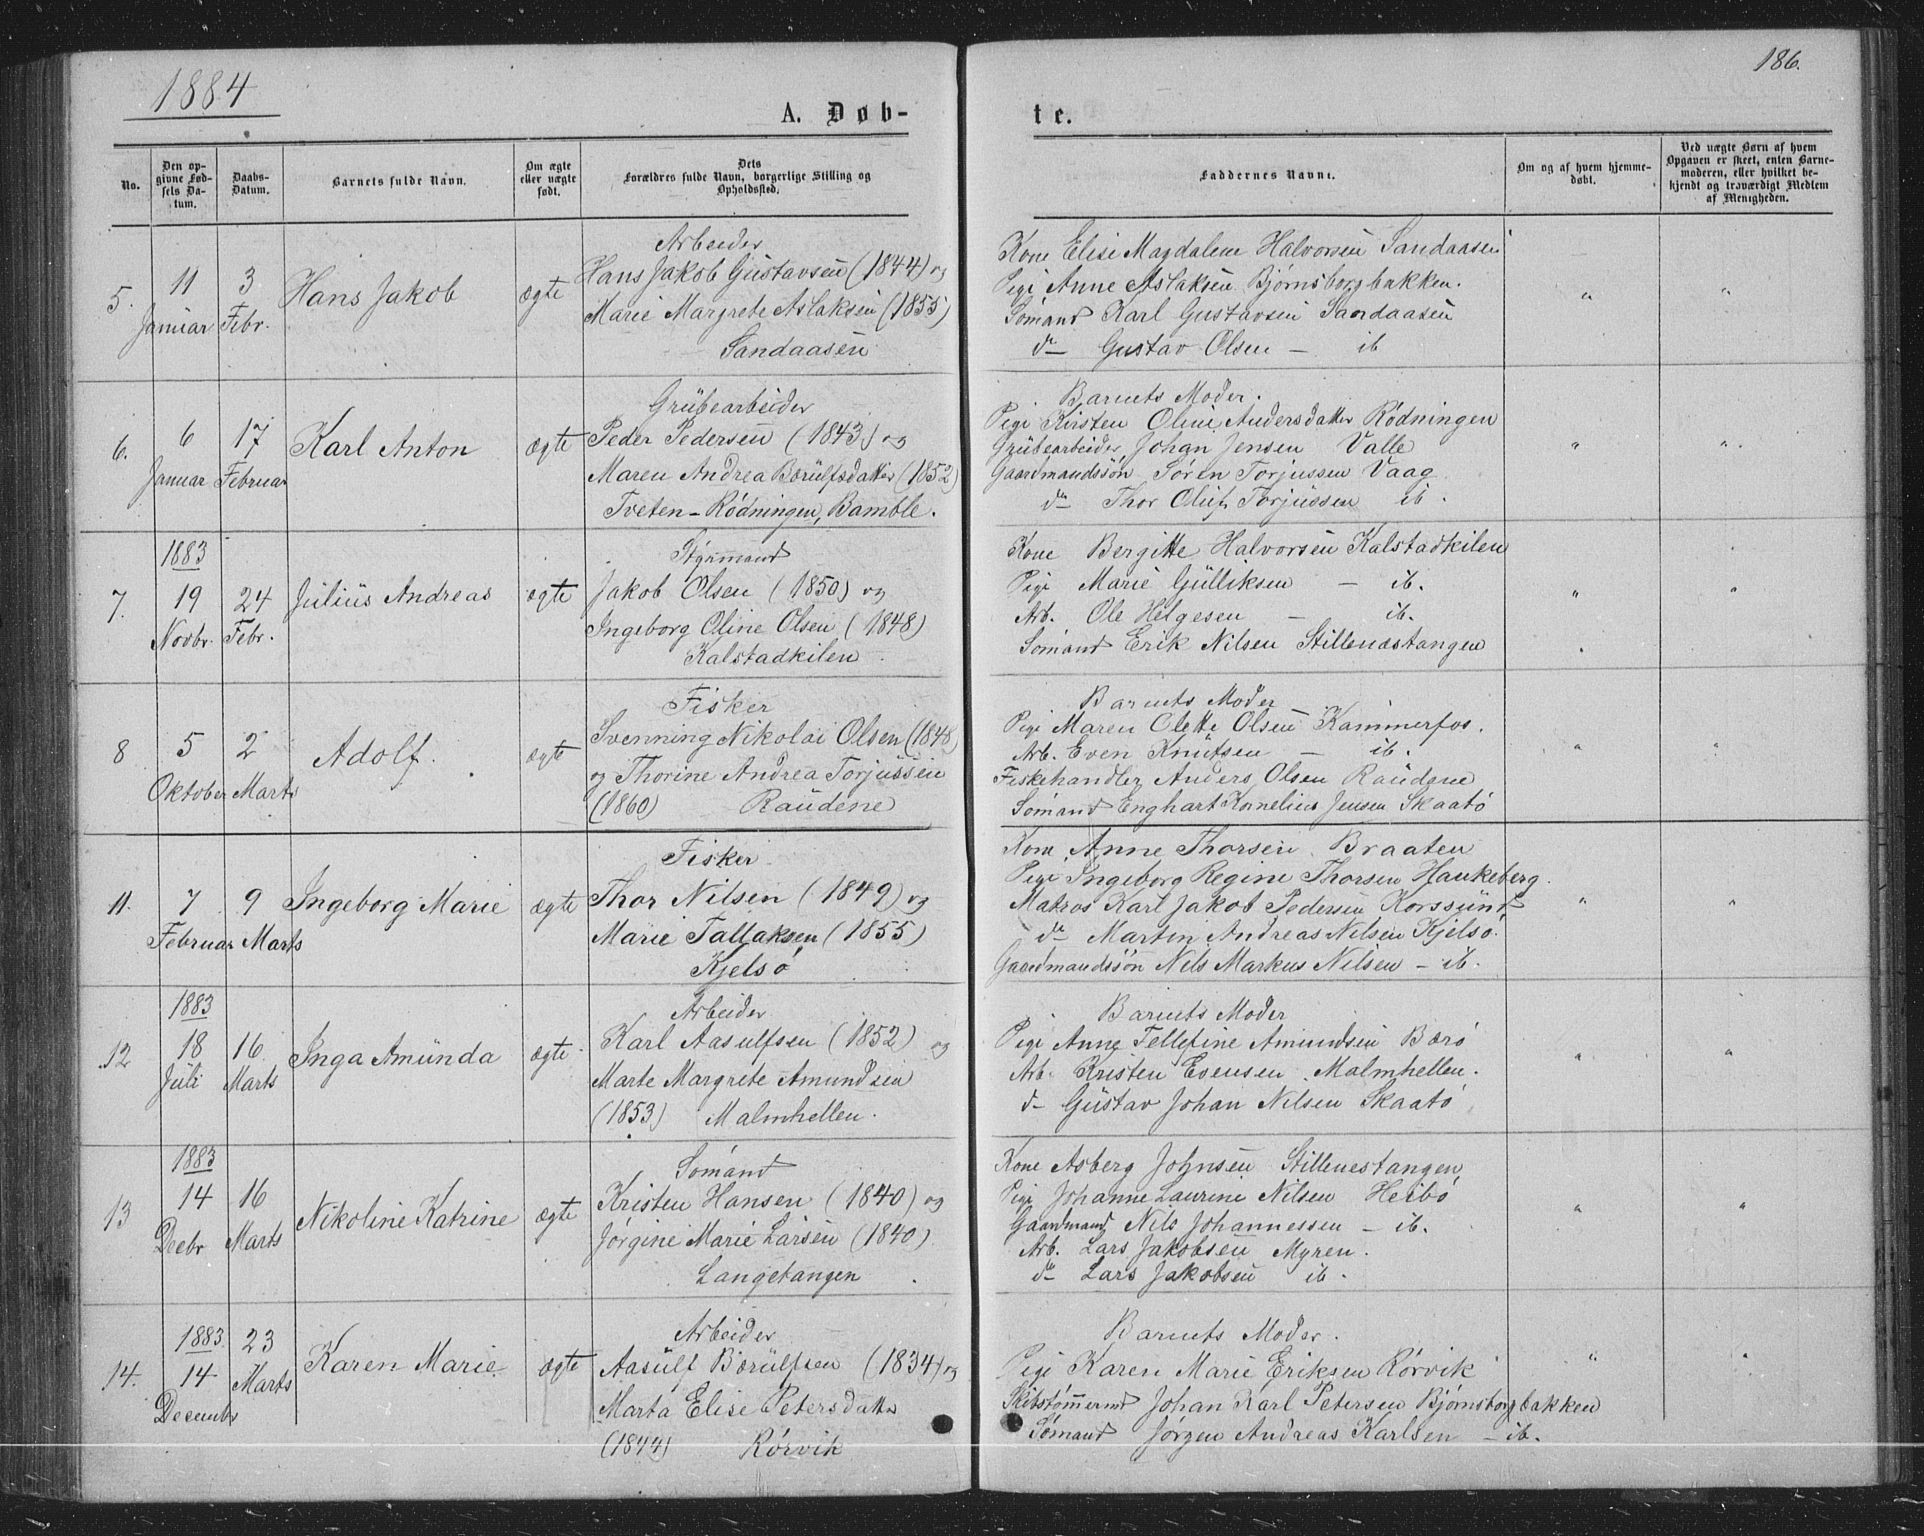 1884
186.
A. Døb-
te.
No.
Den op-
givne Fød-
sels Da-
tum.
Daabs-
Datum.
Barnets fulde Navn.
Om ægte
eller uægte
født.
Dets
Forældres fulde Navn, borgerlige Stilling og
Opholdssted.
Faddernes Navne.
Om og af hvem hjemme-
døbt.
Ved uægte Børn af hvem
Opgaven er skeet, enten Barne-
moderen, eller hvilket be-
kjendt og troværdigt Medlem
af Menigheden.
5.
11
Januar
3
Febr.
Hans Jakob
ægte
Arbeider
Hans Jakob Gustavsen (1844) og
Marie Margrete Aslaksen (1855)
Sandaasen
Kone Elise Magdalene Halvorsen Sandaasen
Pige Anne Aslaksen Bjørnsborgbakken.
Sömand Karl Gustavsen Sandaasen
do Gustav Olsen — ib
"
"
6.
6
Januar
17
Februar
Karl Anton
ægte
Grubearbeider
Peder Pedersen (1843) og
Maren Andrea Börulfsdatter (1852)
Tveten - Rödningen, Bamble.
Barnets Moder.
Pige Kirsten Oline Andersdatter Rödningen
Grubearbeider Johan Jensen Valle
Gaardmandssön Sören Torjussen Vaag
do Thor Oluf Torjussen ib.
"
"
7.
1883
19
Novbr.
24
Febr.
Julius Andreas
ægte
Styrmand
Jakob Olsen (1850) og
Ingeborg Oline Olsen (1848)
Kalstadkilen
Kone Bergitte Halvorsen Kalstadkilen
Pige Marie Gulliksen — ib.
Arb. Ole Helgesen — ib.
Sömand Erik Nilsen Stillenæstangen
"
"
8
5
Oktober
2
Marts
Adolf.
ægte
Fisker
Svenning Nikolai Olsen (1848)
og Thorine Andrea Torjussen
(1860) Raudene
Barnets Moder
Pige Maren Olette Olsen Kammerfos.
Arb. Even Knutsen — ib.
Fiskehandler Anders Olsen Raudene
Sömand Enghart Kornelius Jensen Skaatö
"
"
11.
7
Februar
9
Marts
Ingeborg Marie
ægte
Fisker
Thor Nilsen (1849) og
Marie Tallaksen (1855)
Kjelsö
Kone Anne Thorsen Braaten
Pige Ingeborg Regine Thorsen Haukeberg.
Matros Karl Jakob Pedersen Korssund
do Martin Andreas Nilsen Kjelsö.
Gaardmandssön Nils Markus Nilsen - ib.
"
"
12
1883
18
Juli
16
Marts
Inga Amunda
ægte
Arbeider
Karl Aasulfsen (1852) og
Marte Margrete Amundsen
(1853) Malmhellen.
Barnets Moder
Pige Anne Tellefine Amundsen Bærö
Arb. Kristen Evensen Malmhellen.
d- Gustav Johan Nilsen Skaatö
"
"
13
1883
14
Decbr
16
Marts
Nikoline Katrine
ægte
Sömand
Kristen Hansen (1840) og
Jörgine Marie Larsen (1840)
Langetangen
Kone Asberg Johnsen Stillenestangen
Pige Johanne Laurine Nilsen Heibö
Gaardmand Nils Johannessen - ib.
Arb. Lars Jakobsen Myren.
do Lars Jakobsen ib.
"
"
14.
1883
14
Decembr
23
Marts
Karen Marie
ægte
Arbeider
Aasulf Börulfsen (1834) og
Marta Elise Petersdatter
(1844) Rörvik
Barnets Moder.
Pige Karen Marie Eriksen Rörvik
Skibstömmermd Johan Karl Petersen Bjørnsborgbakken
Sömand Jörgen Andreas Karlsen - ib.
"
"